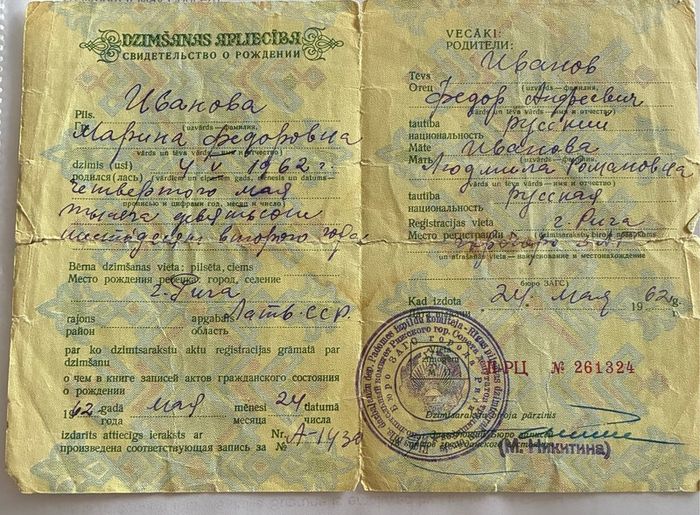 DZIMŠANAS APLIECĪBA
СВИДЕТЕЛЬСТВО О РОЖДЕНИИ
Иванова
Pils.
(uzvārds — фамилия,
Марина Федоровна
vārds un tēva vārds — имя и отчество)
dzimis (usi) 4/V 1962 г.
родился (лась) (vārdiem un cipariem gads, mēnesis un datums —
четвертого мая
прописью и цифрами год, месяц и число)
тысяча девятьсот
шестьдесят второго года
Bērna dzimšanas vieta: pilsēta, ciems
Место рождения ребенка: город, селение
г. Рига
Латв. ССР
rajons apgabals
район область
par ko dzimtsarakstu aktu reģistrācijas grāmatā par
dzimšanu
о чем в книге записей актов гражданского состояния
о рождении
1962 gadā мая mēnesī 24 datumā
года месяца числа
izdarīts attiecīgs ieraksts ar Nr.
произведена соответствующая запись за №
VECĀKI:
РОДИТЕЛИ:
Иванов
Tēvs
Отец (uzvārds — фамилия,
Федор Андреевич
vārds un tēva vārds — имя и отчество)
tautība русский
национальность
Māte Иванова
Мать (uzvārds — фамилия,
Людмила Романовна
vārds un tēva vārds — имя и отчество)
tautība русская
национальность
Reģistrācijas vieta г. Рига
Место регистрации (dzimtsarakstu biroja nosaukums
un atrašanās vieta — наименование и местонахождение
бюро ЗАГС)
Kad izdota 24 мая 1962 g.
II-РЦ № 261324
Dzimtsarakstu biroja pārzinis
(М. Никитина)